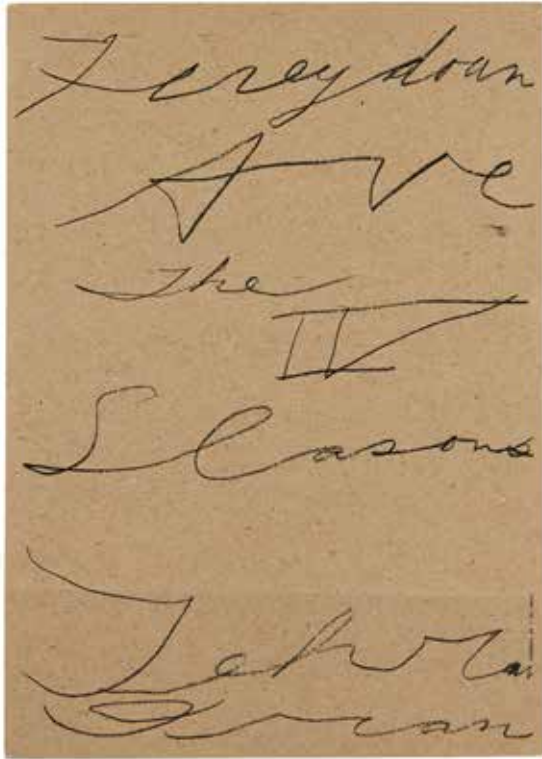 Fereydoun
Ave
The
IV
Seasons
Tehran
Iran